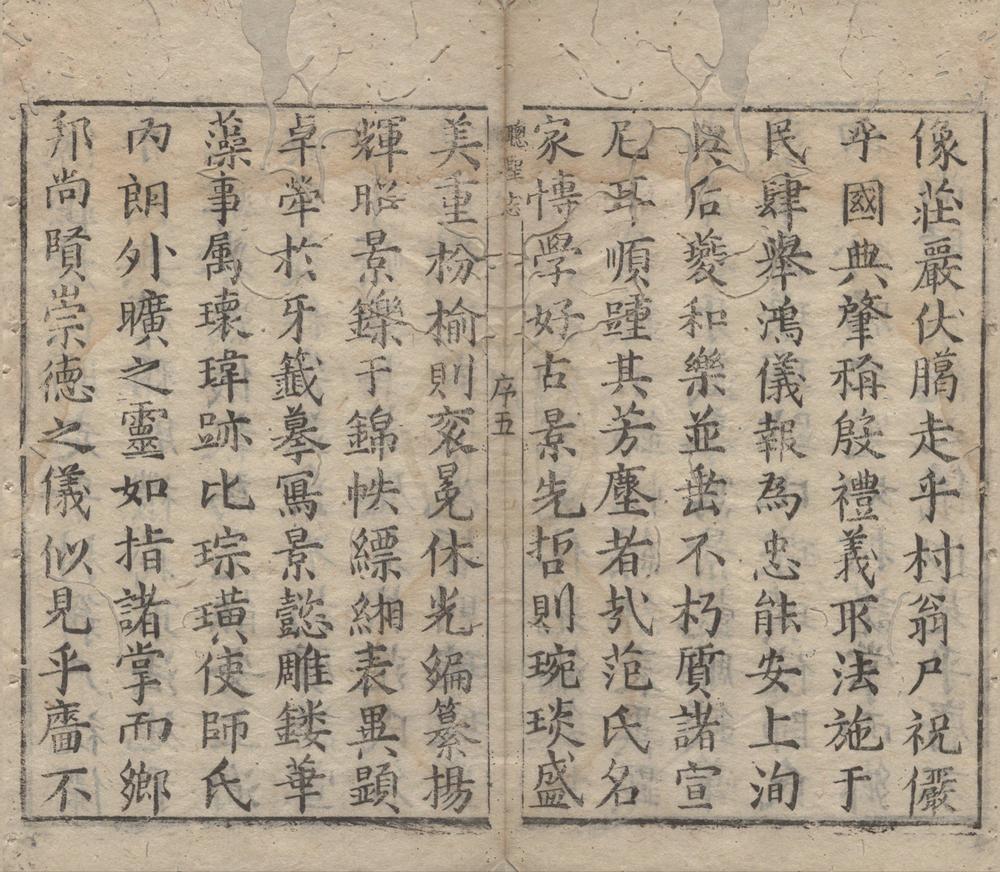 像莊嚴伏臈走乎村翁尸祝儼
乎國典肇稱殷禮義取法施于
民肆舉鴻儀報為忠能安上洵
與后夔和樂並垂不朽質諸宣
尼耳順踵其芳塵者㢤范氏名
家愽學好古景先哲則琬琰盛
聰聖志
序五
美重枌榆則衮冕休光編纂揚
輝昭景鑠于錦帙縹緗表異顕
卓犖於牙籤摹寫景懿雕鏤華
藻事属瓌瑋跡比琮璜使師氏
內朗外曠之靈如指諸掌而鄉
邦尚賢崇德之儀似見乎嗇不